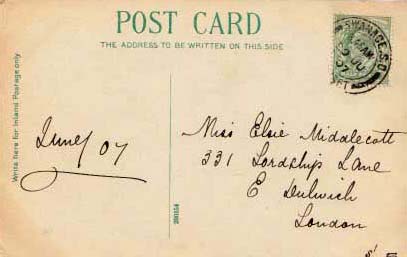 POST CARD
THE ADDRESS TO BE WRITTEN ON THIS SIDE
SWANAGE. S.O
Write here for Inland Postage only
June 07
Miss Elsie Middlecott
331 Lordship Lane
E Dulwich
London